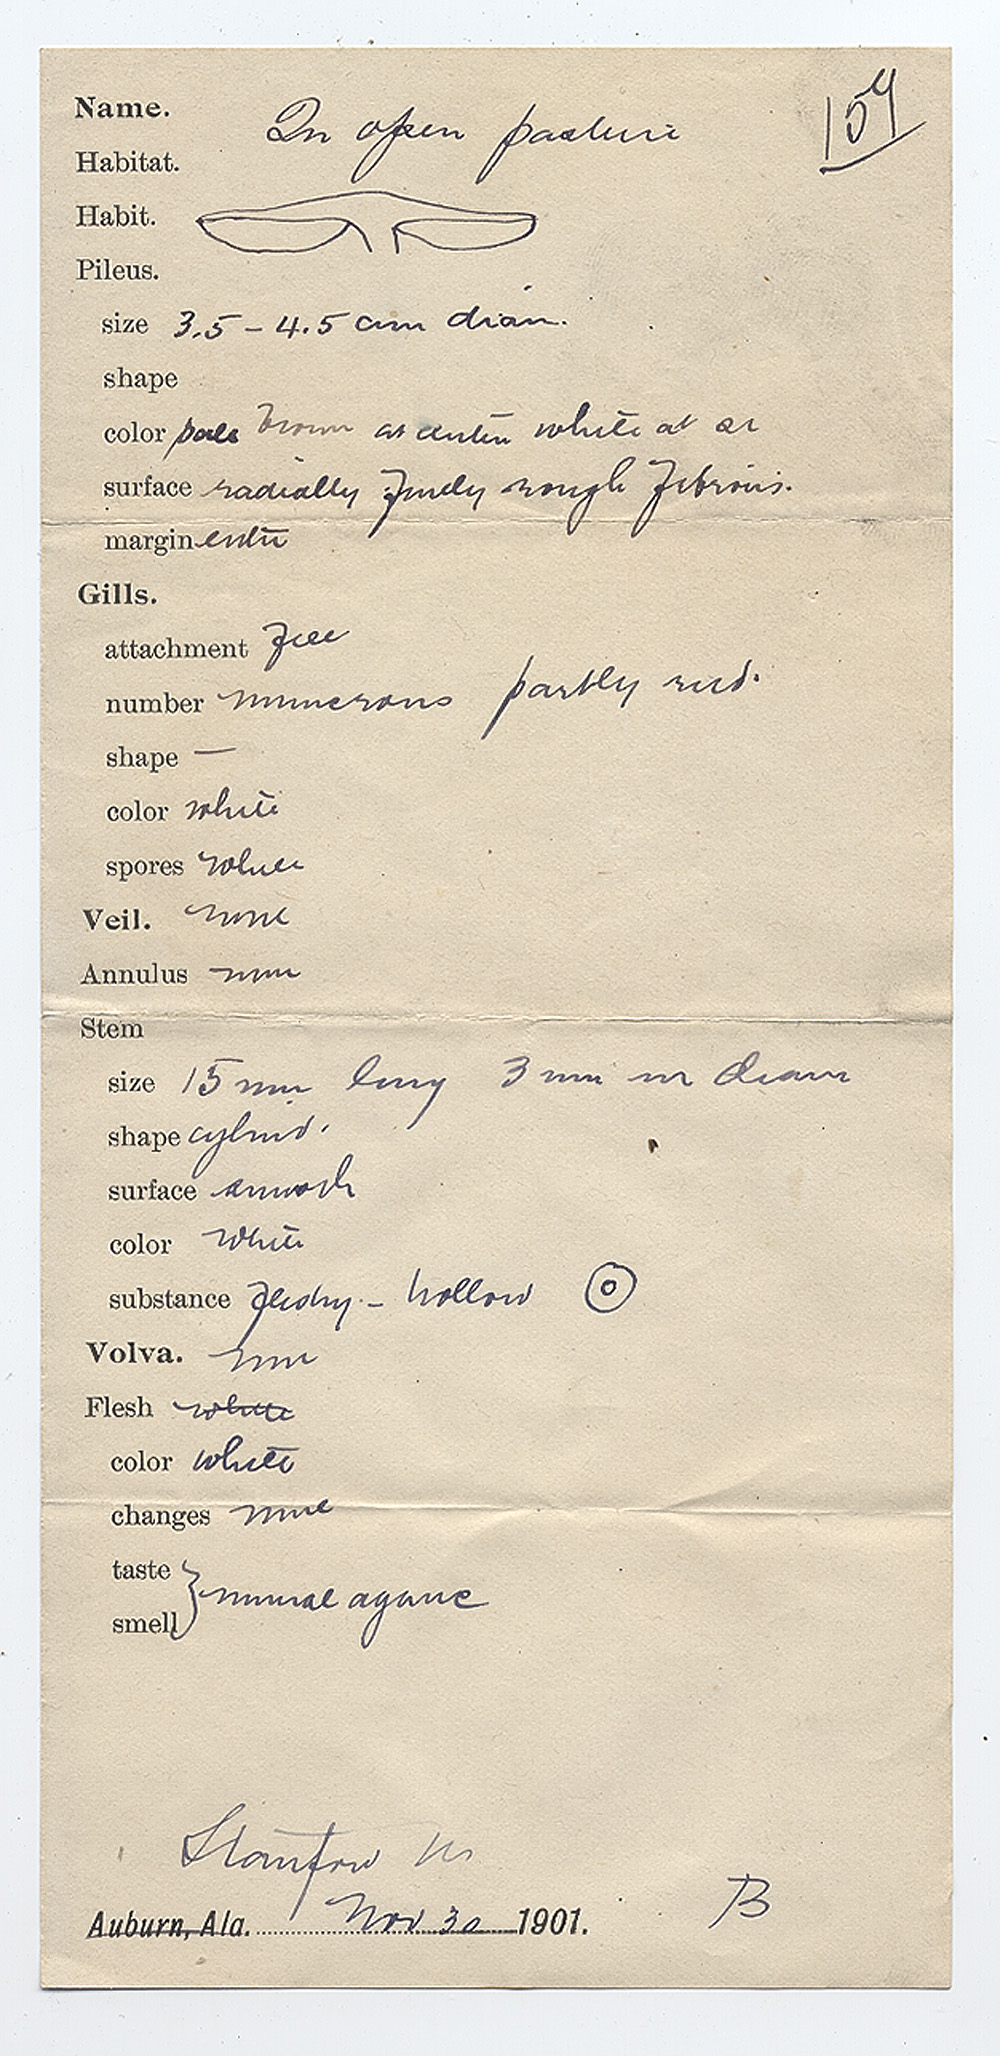 Name.
159
In open pasture
Habitat.
Habit.
Pileus.
size 3.5 - 4.5 cm diam.
shape
color pale brown at center white at
surface radially finely rough fibrous.
margin entire
Gills.
attachment free
number numerous partly rud.
shape —
color white
spores white
Veil. none
Annulus none
Stem
size 15 mm long 3 mm in diam
shape cylind.
surface smooth
color white
substance fleshy - hollow
Volva. none
Flesh white
color white
changes none
taste
smell } agaric
Stanford
Auburn, Ala. Nov 30 1901.
B